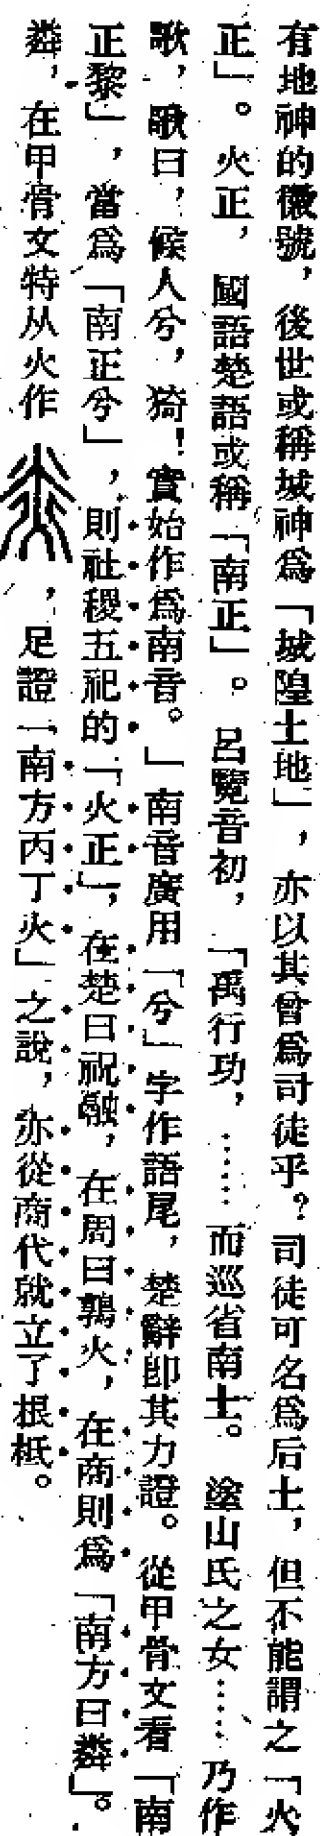 有地神的徽號，後世或稱城神爲「城隍土地」，亦以其曾爲司徒乎？司徒可名爲后土，但不能謂之「火
正」。火正，國語楚語或稱「南正」。呂覽音初，「禹行功，……而巡省南土。塗山氏之女……乃作
歌，歌曰，候人兮，猗！實始作爲南音。」南音廣用「兮」字作語尾，楚辭卽其力證。從甲骨文看「南
正黎」，當爲「南正兮」，則社稷五祀的「火正」，在楚曰祝融，在周曰鶉火，在商則爲「南方曰粦」。
粦，在甲骨文特从火作，足證「南方丙丁火」之說，亦從商代就立了根柢。